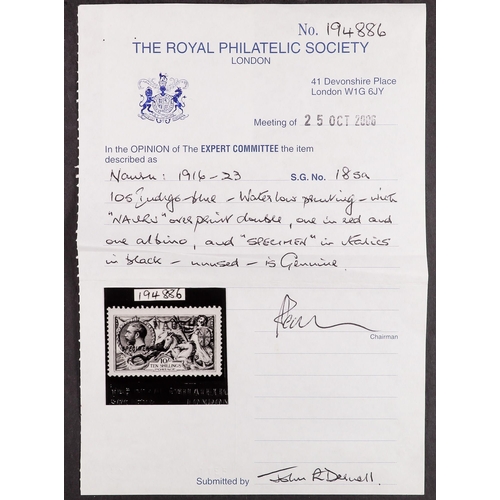 No. 194886
THE ROYAL PHILATELIC SOCIETY
LONDON
41 Devonshire Place
London W1G 6JY
Meeting of 25 OCT 2006
In the OPINION of The EXPERT COMMITTEE the item
described as Nauru: 1916-23 S.G. No. 18sa
10s Indigo-blue - Waterlow printing - with
"NAURU" overprint double, one in red and
one albino, and "SPECIMEN" in italics
in black - unused - is Genuine.
194886
TEN SHILLINGS
Chairman
Submitted by John R Darnell.